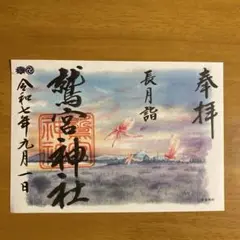 奉拝
長月詣
鷲宮神社
令和七年九月一日